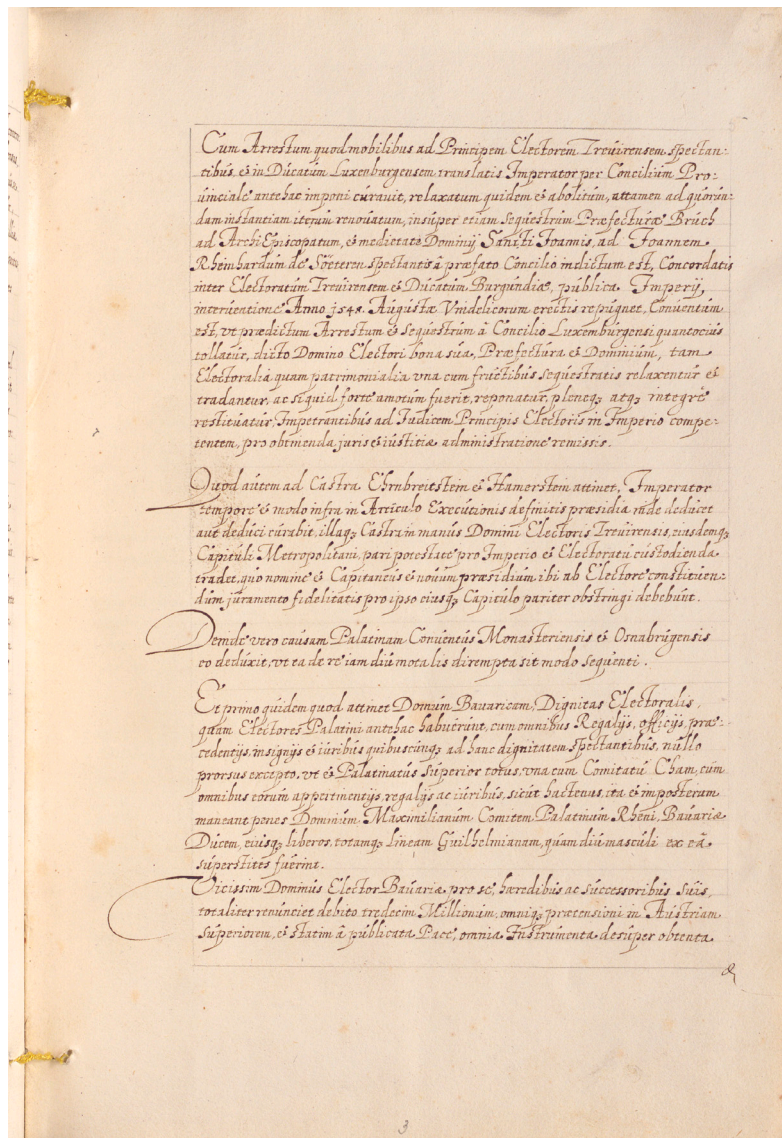 Cum Arrestum quod mobilibus ad Principem Electorem Trevirensem spectan:
tibus, & in Ducatum Luxenburgensem translatis Imperator per Concilium Pro:
uinciale antehac imponi curauit, relaxatum quidem & abolitum, attamen ad quorun:
dam instantiam iterum renouatum, insuper etiam Sequestrum Præfecturæ Brúch
ad ArchiEpiscopatum, & medietatis Dominij Sancti Joannis, ad Joannem
Rheinhardum de Söeteren spectantis â præfato Concilio indictum est, Concordatis
inter Electoratum Treuirensem & Ducatum Burgundiæ, publica Imperij
interuentione Anno 1548. Augustæ Vindelicorum erectis repugnet, Conuentum
est, vt prædictum Arrestum & Sequestrum â Concilio Luxemburgensi quantocius
tollatur, dicto Domino Electori bona sua, Præfectura & Dominium, tam
Electoralia quam patrimonialia vna cum fructibus sequestratis relaxentur &
tradantur, ac siquid forte amotum fuerit, reponatur, pleneq3 atq3 integrè
restituatur, Impetrantibus ad Iudicem Principis Electoris in Imperio compe:
tentem, pro obtinenda juris & iustitiæ administratione remissis.
Quod autem ad Castra Ehrnbreitstein & Hamerstein attinet, Imperator
tempore & modo infra in Articulo Executionis definitis præsidia inde deducet
aut deduci curabit, illaq3 Castra in manus Domini Electoris Treuirensis, eiusdemq3
Capituli Metropolitani, pari potestate pro Imperio & Electoratu custodienda
tradet, quo nomine & Capitaneus & nouum præsidium ibi ab Electore constituen:
dum juramento fidelitatis pro ipso eiusq3 Capitulo pariter obstringi debebunt.
Deinde vero causam Palatinam Conuentus Monasteriensis & Osnabrugensis
eo deduxit, vt ea de re iam diu mota lis dirempta sit modo sequenti.
Et primo quidem quod attinet Domum Bauaricam, Dignitas Electoralis,
quam Electores Palatini antehac habuerunt, cum omnibus Regalijs, officijs, præ:
cedentijs, insignijs & iuribus quibuscunq3 ad hanc dignitatem spectantibus, nullo
prorsus excepto, vt & Palatinatus Superior totus, vna cum Comitatu Cham, cum
omnibus eorum appertinentijs, regalijs ac iuribus, sicut hactenus, ita & imposterum
maneant penes Dominum Maximilianum Comitem Palatinum Rheni, Bauariæ
Ducem, eiusq3 liberos, totamq3 lineam Guilhelmianam, quam diu masculi ex eâ
superstites fuerint.
Vicissim Dominus Elector Bauariæ pro se, hæredibus ac successoribus suis,
totaliter renunciet debito tredecim Millionum, omniq3 prætensioni in Austriam
Superiorem, & statim â publicata Pace, omnia Instrumenta desuper obtenta
3